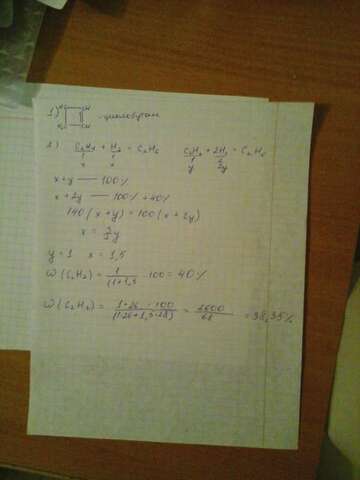 1) H₂C CH - циклобутен
H₂C CH
2) C₂H₄ + H₂ = C₂H₆ C₂H₂ + 2H₂ = C₂H₆
x x y 2y
x+y — 100%
x+2y — 100% +40%
140(x+y) = 100(x+2y)
x = 3/2 y
y = 1 x = 1,5
ω(C₂H₂) = 1/(1+1,5 · 100 = 40%
ω(C₂H₂) = 1·26 · 100/(1·26+1,5·28) = 2600/68 = 38,35%